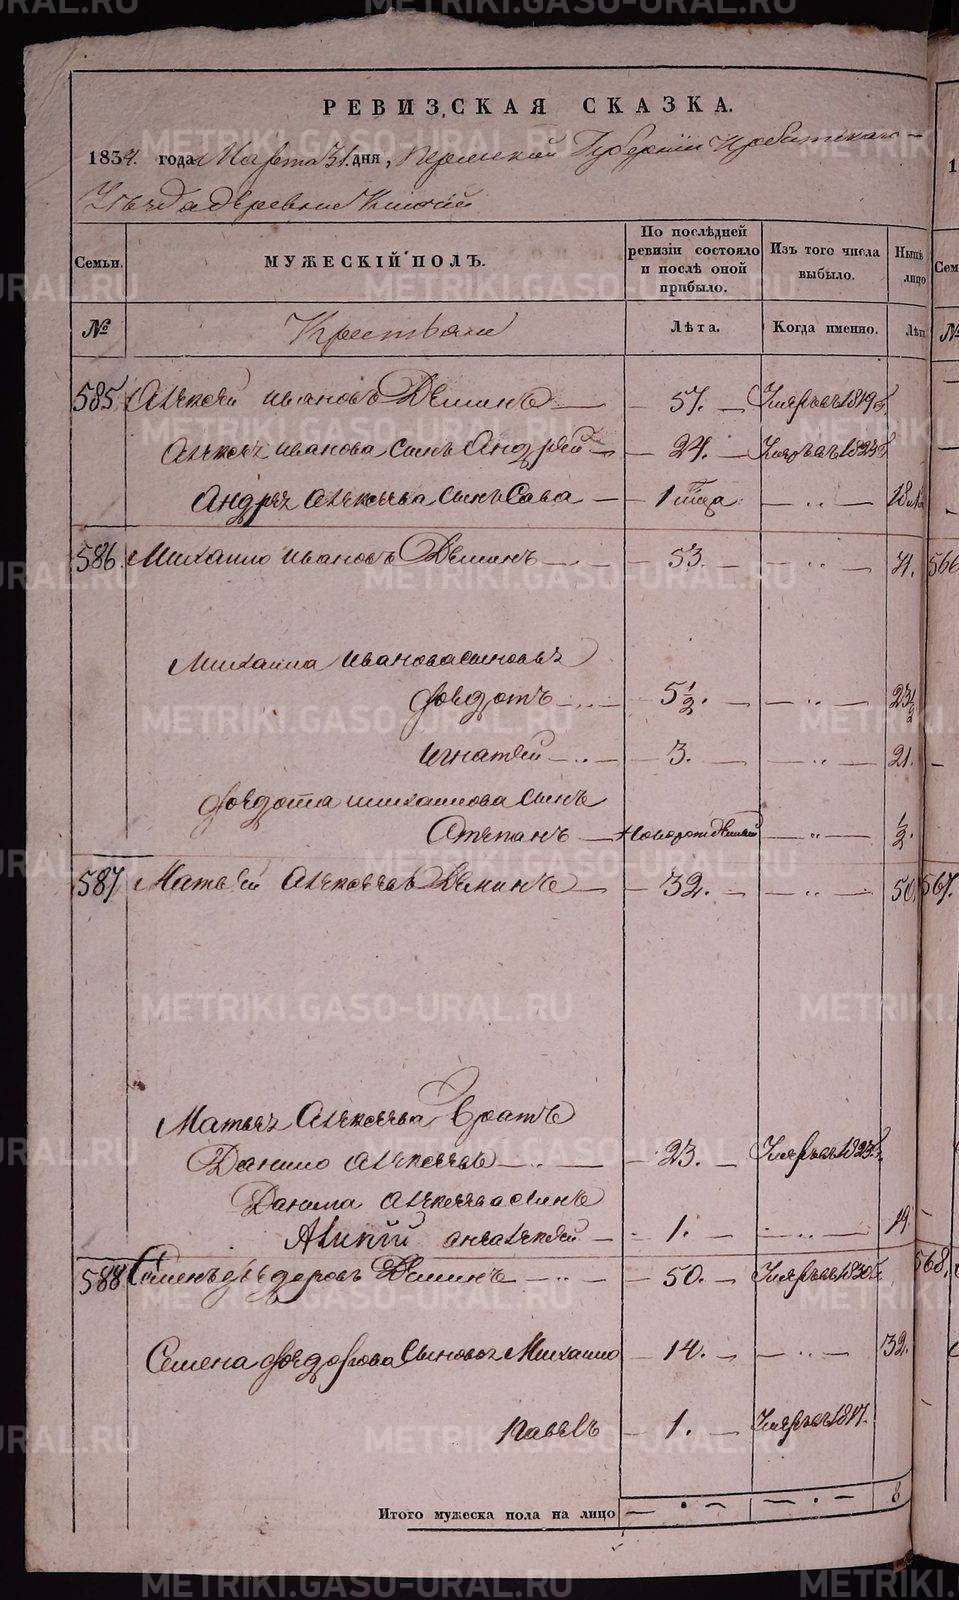 РЕВИЗСКАЯ СКАЗКА.
1834. года Марта 31. дня, Пермской Губернии Ирбитскаго
Уезда деревни
Семьи. МУЖЕСКІЙ ПОЛЪ. По послѣдней ревизіи состояло и послѣ оной прибыло. Изъ того числа выбыло. Нынѣ лицо Сем
№ Крестьяне Лѣта. Когда именно. Лѣт №
585 Алексей Ивановъ Деминъ 57. Умеръ въ 1819 г.
Алексея Иванова сынъ Андрей 24. Умеръ въ 1823 г.
Андрея Алексеева сынъ Сава 1 18
586. Михаило Ивановъ Деминъ 53. 71. 566
Михаила Иванова сыновья
Фоедотъ 5 1/2. 23 1/2
Игнатей 3. 21.
Фоедота Михаилова сынъ
Степанъ Новорожденный 1/2.
587 Матвей Алексеевъ Деминъ 32. 50. 567.
Матвея Алексеева братъ
Данило Алексеевъ 23. Умеръ въ 1823 г.
Данила Алексеева сынъ
Алексей 1. 19
588 Семенъ Фоедоровъ Деминъ 50. Умеръ въ 1830 г. 568.
Семена Фоедорова сыновья Михаило 14. 32.
Павелъ 1. Умеръ въ 1817.
Итого мужеска пола на лицо 8
METRIKI.GASO-URAL.RU